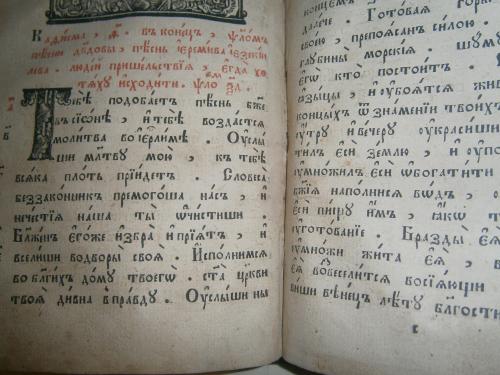 Каѳисма, ѳ҃. въ конецъ, ѱломъ
пѣсню дв҃дову, пѣснь іереміѧ і езекі
илѧ. людей пришельствіѧ, егда хо
тѧху исходити. ѱло ѯд
Тебѣ подобаетъ пѣснь бж҃е
въ сіѡнѣ, и тебѣ воздастсѧ
молитва во іер҃лимѣ. Оуслы
ши мл҃тву мою, къ тебѣ
всѧка плоть прїидетъ. Словеса
беззаконникъ премогоша насъ, и
нечестїѧ наша ты ѡчистиши.
Блж҃нъ егоже избра и прїѧтъ, и
вселиши во дворы своѧ. Исполнимсѧ
во бл҃гихъ дому твоегѡ. ст҃а цр҃кви
твоѧ дивна в правду. Оуслыши ны
концемъ
далече. Готоваѧ гор
своею, препоѧсанъ силою.
глубины морскїѧ. шуму
егѡ кто постоитъ.
ѧзыцы, и убоѧтсѧ жив
концыхъ ѿ знаменїи твоихъ
оутру и вечеру оукрасиши
тилъ еси землю, и оупо
оумножилъ еси ѡбогатити
бж҃їѧ наполнисѧ водъ,
еси пищу имъ, ѧкѡ
уготованїе. Бразды еѧ
оумножи жита еѧ, в
еѧ возвеселитсѧ восїѧющи
виши вѣнецъ лѣту бл҃гости